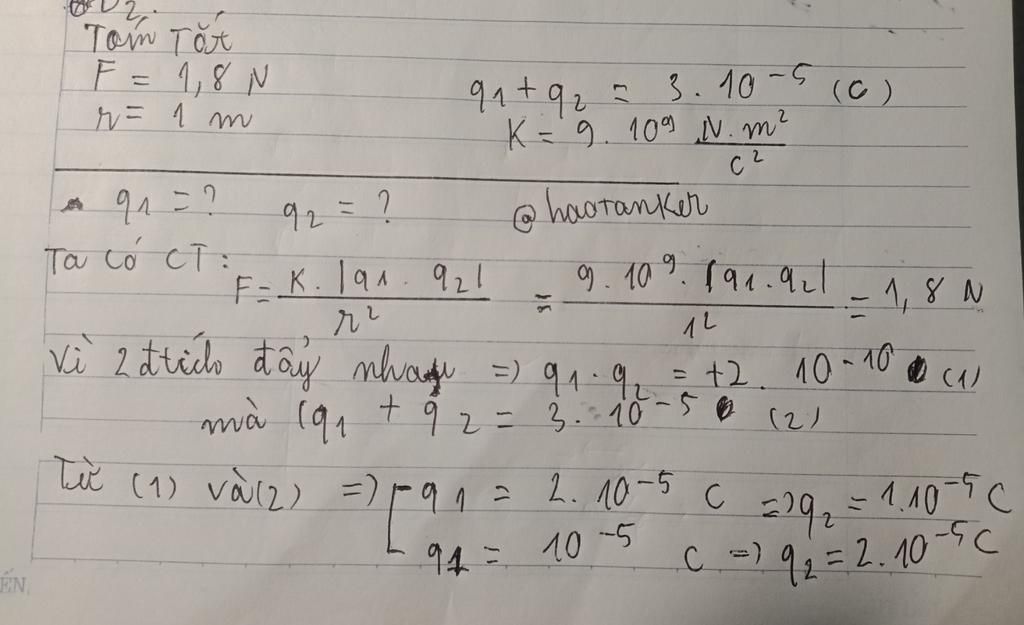 D2.
Tóm Tắt
F = 1,8 N
r = 1 m
q1 + q2 = 3. 10^-5 (C)
K = 9. 10^9 N.m^2/C^2
q1 = ? q2 = ? @haoTanker
Ta có CT:
F = K. |q1 . q2| / r^2 = 9. 10^9. |q1. q2| / 1^2 = 1,8 N
Vì 2 đtích đẩy nhau => q1 . q2 = +2. 10^-10 (1)
mà (q1 + q2 = 3. 10^-5 (2)
Từ (1) và (2) => [ q1 = 2. 10^-5 C => q2 = 1.10^-5 C
q1 = 10^-5 C => q2 = 2.10^-5 C
ẾN,